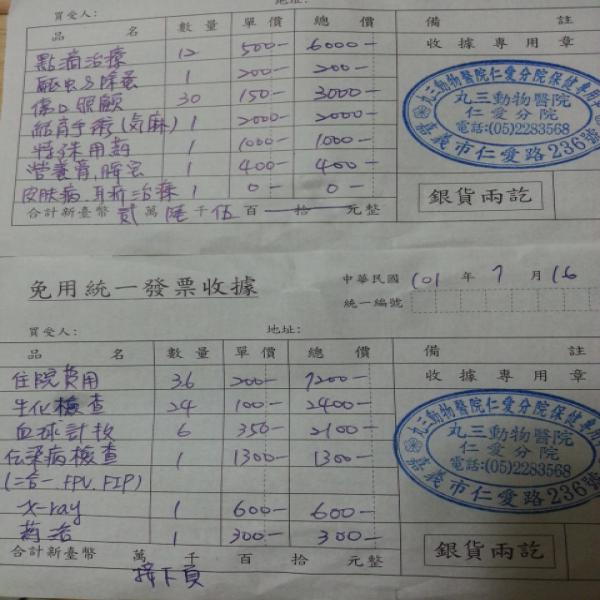 買受人: 地址:
品 名 數 量 單 價 總 價 備 註
點滴治療 12 500- 6000-
驅虫&除蚤 1 200- 200-
傷口照顧 30 150- 3000-
結育手術(気麻) 1 2000- 2000-
特殊用葯 1 1000- 1000-
營養膏, 1 400- 400-
皮膚病.耳疥治療 1 0- 0-
合計新臺幣 貳 萬 陸 千 伍 百 拾 元整
收據專用章
丸三動物醫院仁愛分院保健專用
丸三動物醫院
仁愛分院
電話:(05)2283568
嘉義市仁愛路236號
銀貨兩訖
免用統一發票收據
中華民國 101 年 7 月 16
統一編號
買受人: 地址:
品 名 數 量 單 價 總 價 備 註
住院費用 36 200- 7200-
生化檢查 24 100- 2400-
血球計枚 6 350- 2100-
伝染病檢查 1 1300- 1300-
(二合一.FPV.FIP)
X-ray 1 600- 600-
1 300- 300-
合計新臺幣 萬 千 百 拾 元整
接下頁
收據專用章
丸三動物醫院仁愛分院保健專用
丸三動物醫院
仁愛分院
電話:(05)2283568
嘉義市仁愛路236號
銀貨兩訖